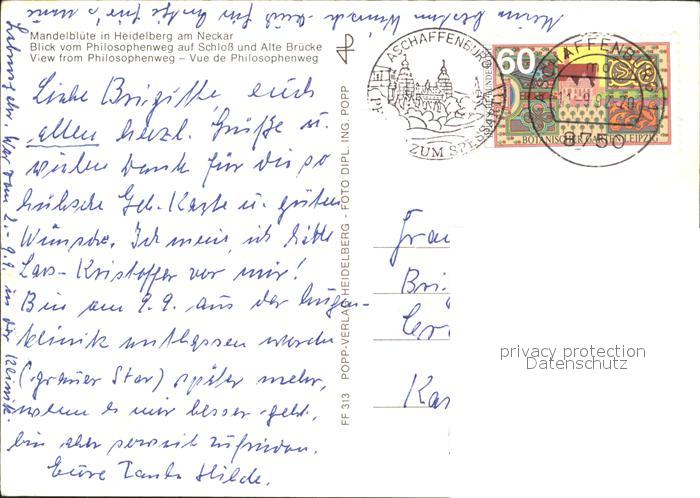 Mandelblüte in Heidelberg am Neckar
Blick vom Philosophenweg auf Schloß und Alte Brücke
View from Philosophenweg – Vue de Philosophenweg
Liebe Brigitte, euch
allen herzl. Grüße u.
vielen Dank für die so
hübsche Geb.-Karte u. guten
Wünsche. Ich mein, ich hätte
Lars-Kristoffer vor mir!
Bin am 9.9. aus der Augen-
klinik entlassen worden
(grauer Star) später mehr,
wenn es mir besser geht,
bin aber soweit zufrieden.
Eure Tante Hilde.
Meine besten Wünsche auch für
War vom 2.-9.9. in der Klinik.
FF 313 POPP-VERLAG HEIDELBERG - FOTO DIPL. ING. POPP
ASCHAFFENBURG
ZUM SPESSART
60
BOTANISCHER GARTEN LEIPZIG
ASCHAFFENBURG
8750
Frau
Bri
Ka
privacy protection
Datenschutz